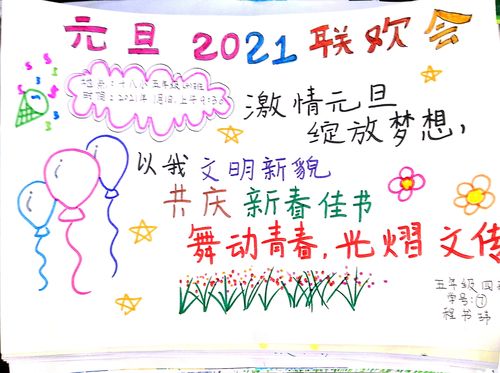 元旦 2021 联欢会
班级:十八小五年级四班
时间:2021年1月1日上午9:30
激情元旦
绽放梦想,
以我文明新貌
共庆新春佳书
舞动青春,光熠文传
五年级四
学号:⑦
程书玮